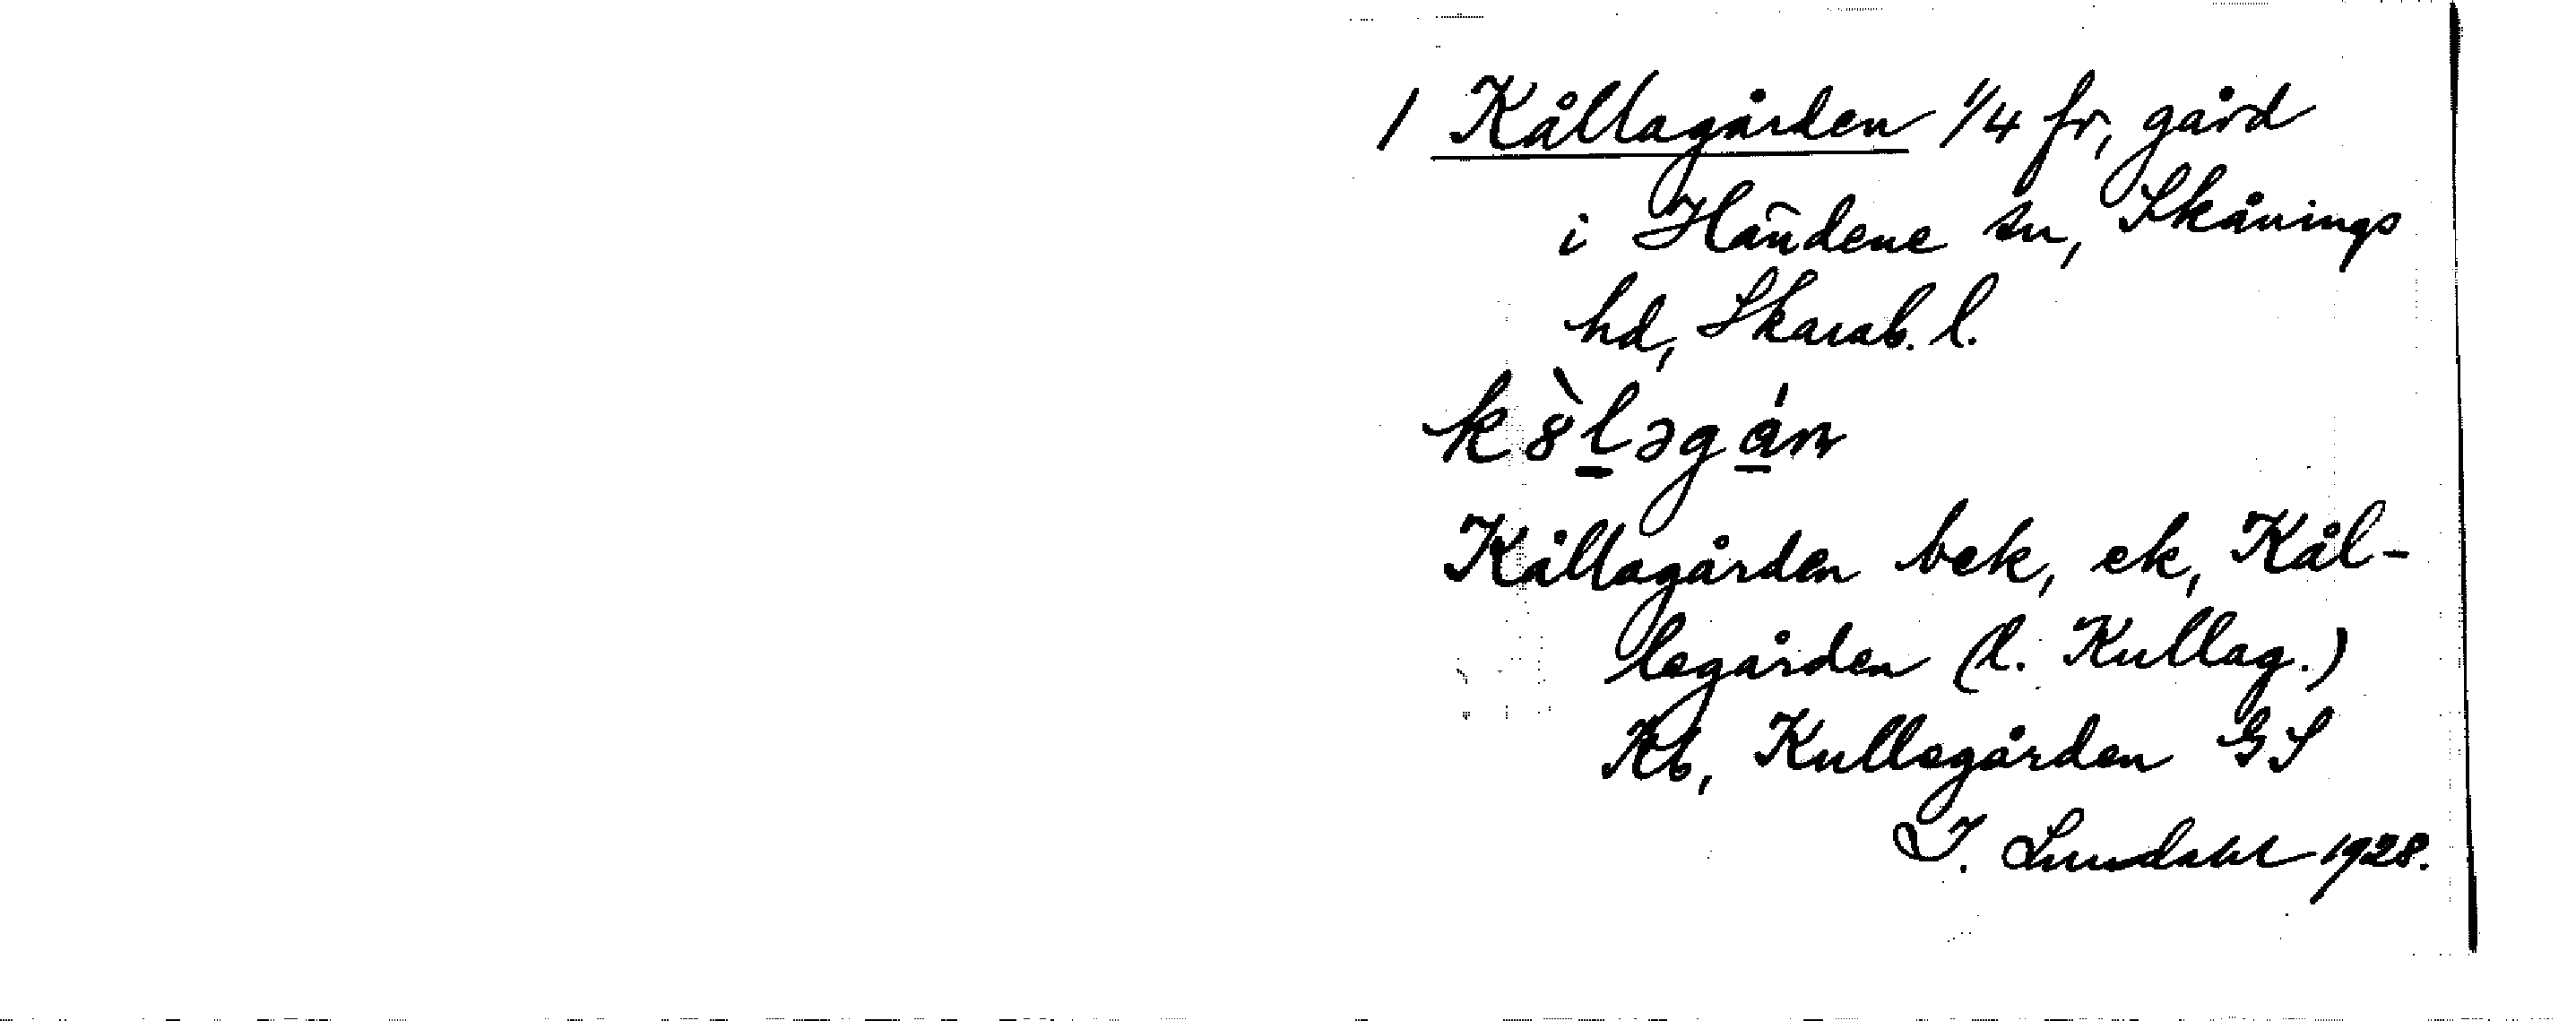 1 Kållagården 1/4 fr, gård
i Händene sn, Skånings
hd, Skarab. l.
k8̀l̲əgá̲n
Kållagården bek, ek, Kål-
legården (l. Kullag.)
Kb, Kullegården GS
I. Lundahl 1928.